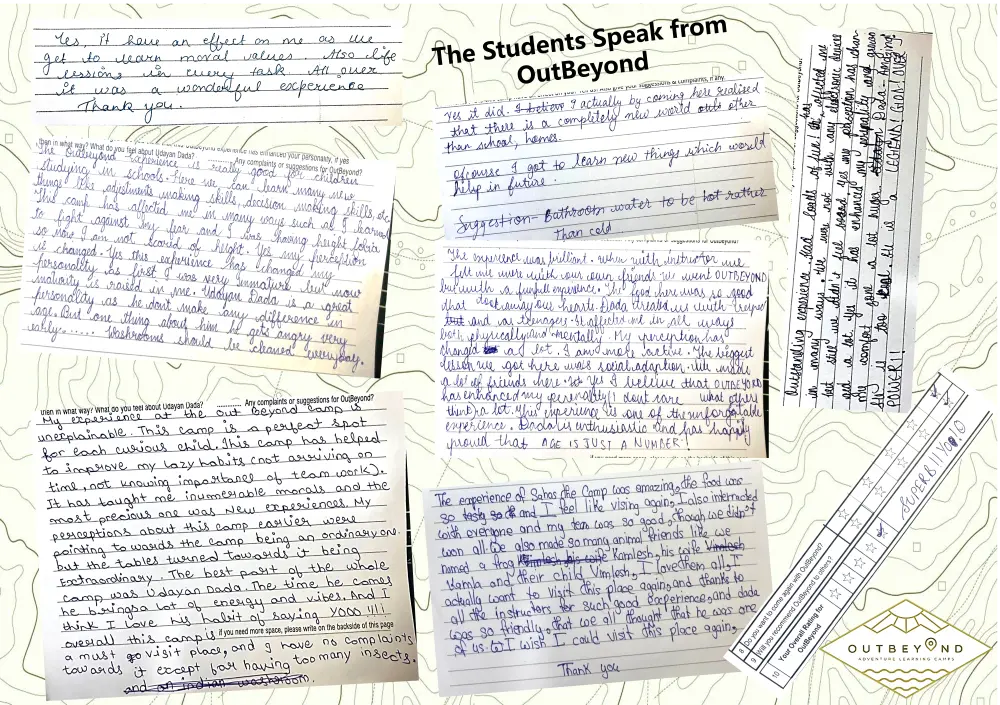 The Students Speak from
OutBeyond
Yes, it have an effect on me as we
get to learn moral values. Also life
lessons in every task. All over
it was a wonderful experience
Thank you.
then in what way? What do you feel about Udayan Dada?
has enhanced your personality, if yes
Any complaints or suggestions for OutBeyond?
The OutBeyond Experience is really good for children
studying in schools. Here we can learn many new
things like adjustments making skills, decision making skills, etc
This camp has affected me in many ways such as I learned
to fight against my fear and I was having height fobia
so now I am not scared of height. Yes my perception
is changed. Yes this experience has changed my
personality as first I was very immature but now
maturity is raised in me. Udayan Dada is a great
personality as he dont make any difference in
age. But one thing about him he gets angry very
early...... Washrooms should be cleaned everyday.
then in what way? What do you feel about Udayan Dada? Any complaints or suggestions for OutBeyond?
My experience at the Out Beyond Camp is
unexplainable. This camp is a perfect spot
for each curious child. This camp has helped
to improve my lazy habits (not arriving on
time, not knowing importance of team work).
It has taught me inumerable morals and the
most precious one was New experiences. My
perceptions about this camp earlier were
pointing towards the camp being an ordinary one
but the tables turned towards it being
Extraordinary. The best part of the whole
camp was Udayan Dada. The time he comes
he brings a lot of energy and vibes. And I
think I love his habit of saying YOOO !!!!
overall this camp is if you need more space, please write on the backside of this page
a must go visit place, and I have no complaints
towards it except for having too many insects.
and an indian washroom.
give your suggestions & complaints, if any
Yes it did. I believe I actually by coming here realised
that there is a completely new world outs other
than school, homes.
ofcourse I got to learn new things which would
help in future.
Suggestion- Bathroom water to be hot rather
than cold
suggestions for OutBeyond?
The experience was brilliant. When with instructor we
felt we were with our own friends. We went OUTBEYOND
but with a funfull experience. The food here was so good
that
Dada treated us with respect
and we teenagers. It affected me in all ways
both physically and mentally. My perception has
changed a lot. I am more active. The biggest
lesson we got here was social adaption. We made
a lot of friends here. Yes I believe that OUTBEYOND
has enhanced my personality I dont care what others
think a lot. This experience is one of the unforgetable
experience. Dada is enthusiastic and has
proved that AGE IS JUST A NUMBER!
The experience of Sahas the Camp was amazing, the food was
so tasty and I feel like vising again, I also interracted
with everyone and my team was so good, though we didn't
won all. We also made so many animal friends like we
named a frog Kamlesh, his wife
Kamla and their child Vimlesh, I love them all, I
actually want to visit this place again, and thanks to
all the instructors for such good Experience, and dada
was so friendly, that we all thought that he was one
of us. I wish I could visit this place again,
Thank you
Outstanding experience. Had loads of fun! It has affected me
in many ways. We was not with any electronic device
but still we didn't feel
and a lot. Yes it has enhanced my personality and
my comfort zone a lot
fun is too
He is a LEGEND! GIGA
POWER!
8 Do you want to come again with OutBeyond?
9 Will you recommend OutBeyond to others?
10 Your Overall Rating for
OutBeyond
SUPERB!!
OUTBEYOND
ADVENTURE LEARNING CAMPS